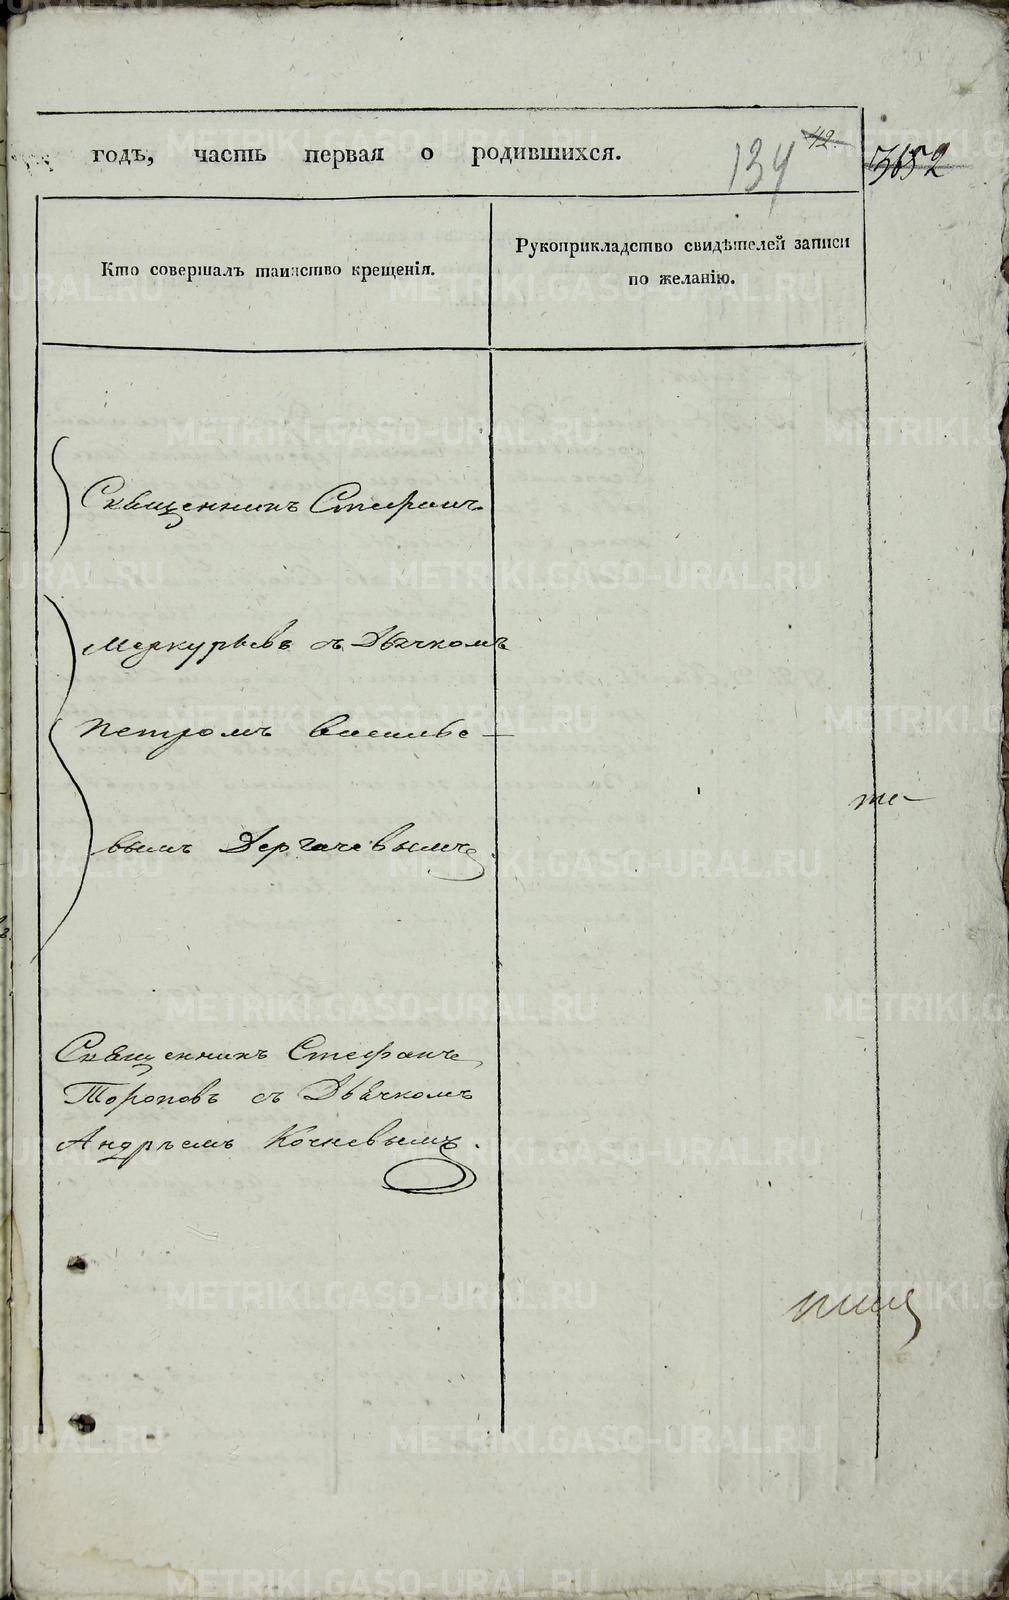 годъ, часть первая о родившихся.
134
42
3652
Кто совершалъ таинство крещенія.
Рукоприкладство свидѣтелей записи
по желанію.
Священникъ Стефанъ
Меркурьевъ съ Дьячкомъ
Петромъ Василье-
вымъ Дергачевымъ.
те-
Священникъ Стефанъ
Тороповъ съ Дьячкомъ
Андрѣемъ Кочневымъ.
METRIKI.GASO-URAL.RU